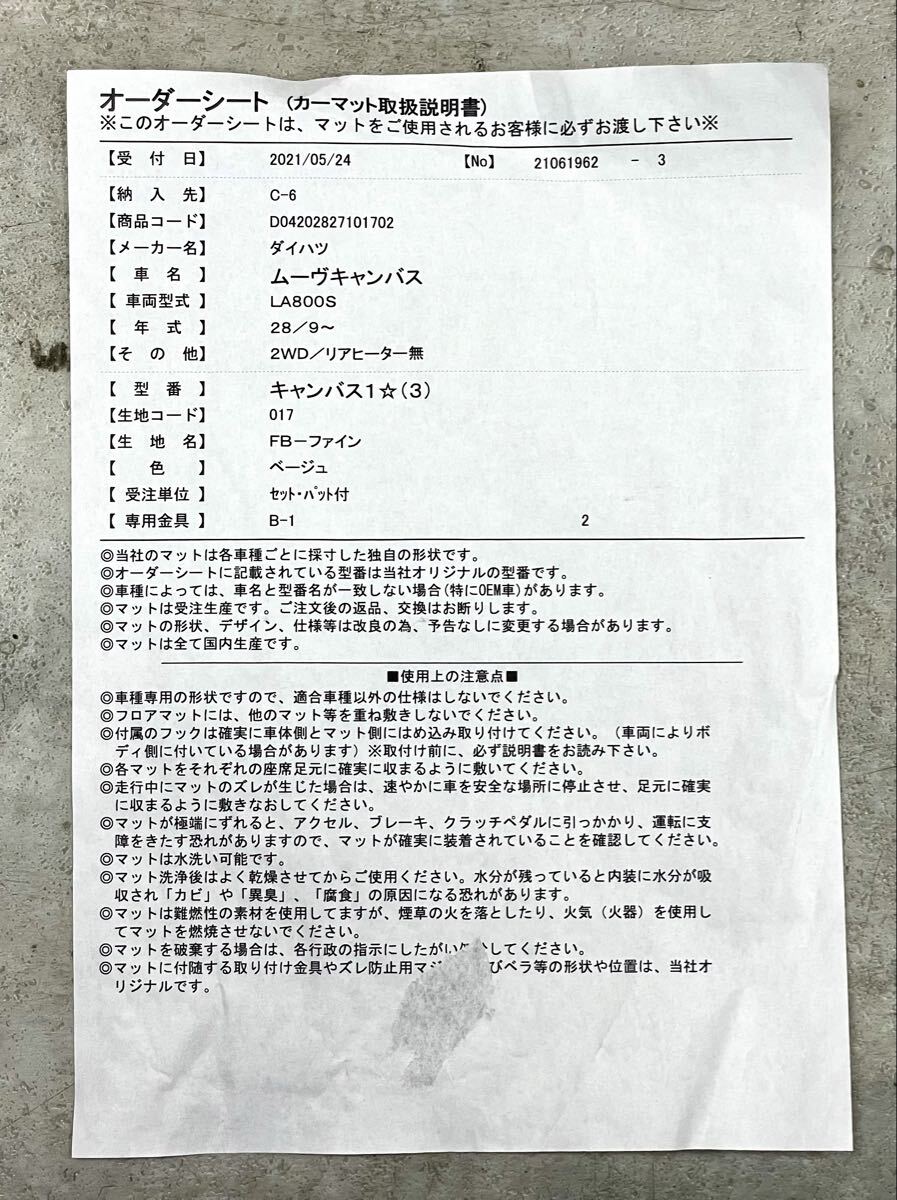 オーダーシート（カーマット取扱説明書）
※このオーダーシートは、マットをご使用されるお客様に必ずお渡し下さい※
【受　付　日】 2021/05/24 【No】 21061962 － 3
【納　入　先】 C-6
【商品コード】 D04202827101702
【メーカー名】 ダイハツ
【　車　名　】 ムーヴキャンバス
【 車両型式 】 LA800S
【　年　式　】 28／9～
【そ　の　他】 2WD／リアヒーター無
【　型　番　】 キャンバス1☆(3)
【生地コード】 017
【生　地　名】 FB－ファイン
【　　色　　】 ベージュ
【 受注単位 】 ｾｯﾄ･ﾊﾟｯﾄ付
【 専用金具 】 B-1 2
◎当社のマットは各車種ごとに採寸した独自の形状です。
◎オーダーシートに記載されている型番は当社オリジナルの型番です。
◎車種によっては、車名と型番名が一致しない場合(特にOEM車)があります。
◎マットは受注生産です。ご注文後の返品、交換はお断りします。
◎マットの形状、デザイン、仕様等は改良の為、予告なしに変更する場合があります。
◎マットは全て国内生産です。
■使用上の注意点■
◎車種専用の形状ですので、適合車種以外の仕様はしないでください。
◎フロアマットには、他のマット等を重ね敷きしないでください。
◎付属のフックは確実に車体側とマット側にはめ込み取り付けてください。（車両によりボ
ディ側に付いている場合があります）※取付け前に、必ず説明書をお読み下さい。
◎各マットをそれぞれの座席足元に確実に収まるように敷いてください。
◎走行中にマットのズレが生じた場合は、速やかに車を安全な場所に停止させ、足元に確実
に収まるように敷きなおしてください。
◎マットが極端にずれると、アクセル、ブレーキ、クラッチペダルに引っかかり、運転に支
障をきたす恐れがありますので、マットが確実に装着されていることを確認してください。
◎マットは水洗い可能です。
◎マット洗浄後はよく乾燥させてからご使用ください。水分が残っていると内装に水分が吸
収され「カビ」や「異臭」、「腐食」の原因になる恐れがあります。
◎マットは難燃性の素材を使用してますが、煙草の火を落としたり、火気（火器）を使用し
てマットを燃焼させないでください。
◎マットを破棄する場合は、各行政の指示にしたがい してください。
◎マットに付随する取り付け金具やズレ防止用マジ びベラ等の形状や位置は、当社オ
リジナルです。